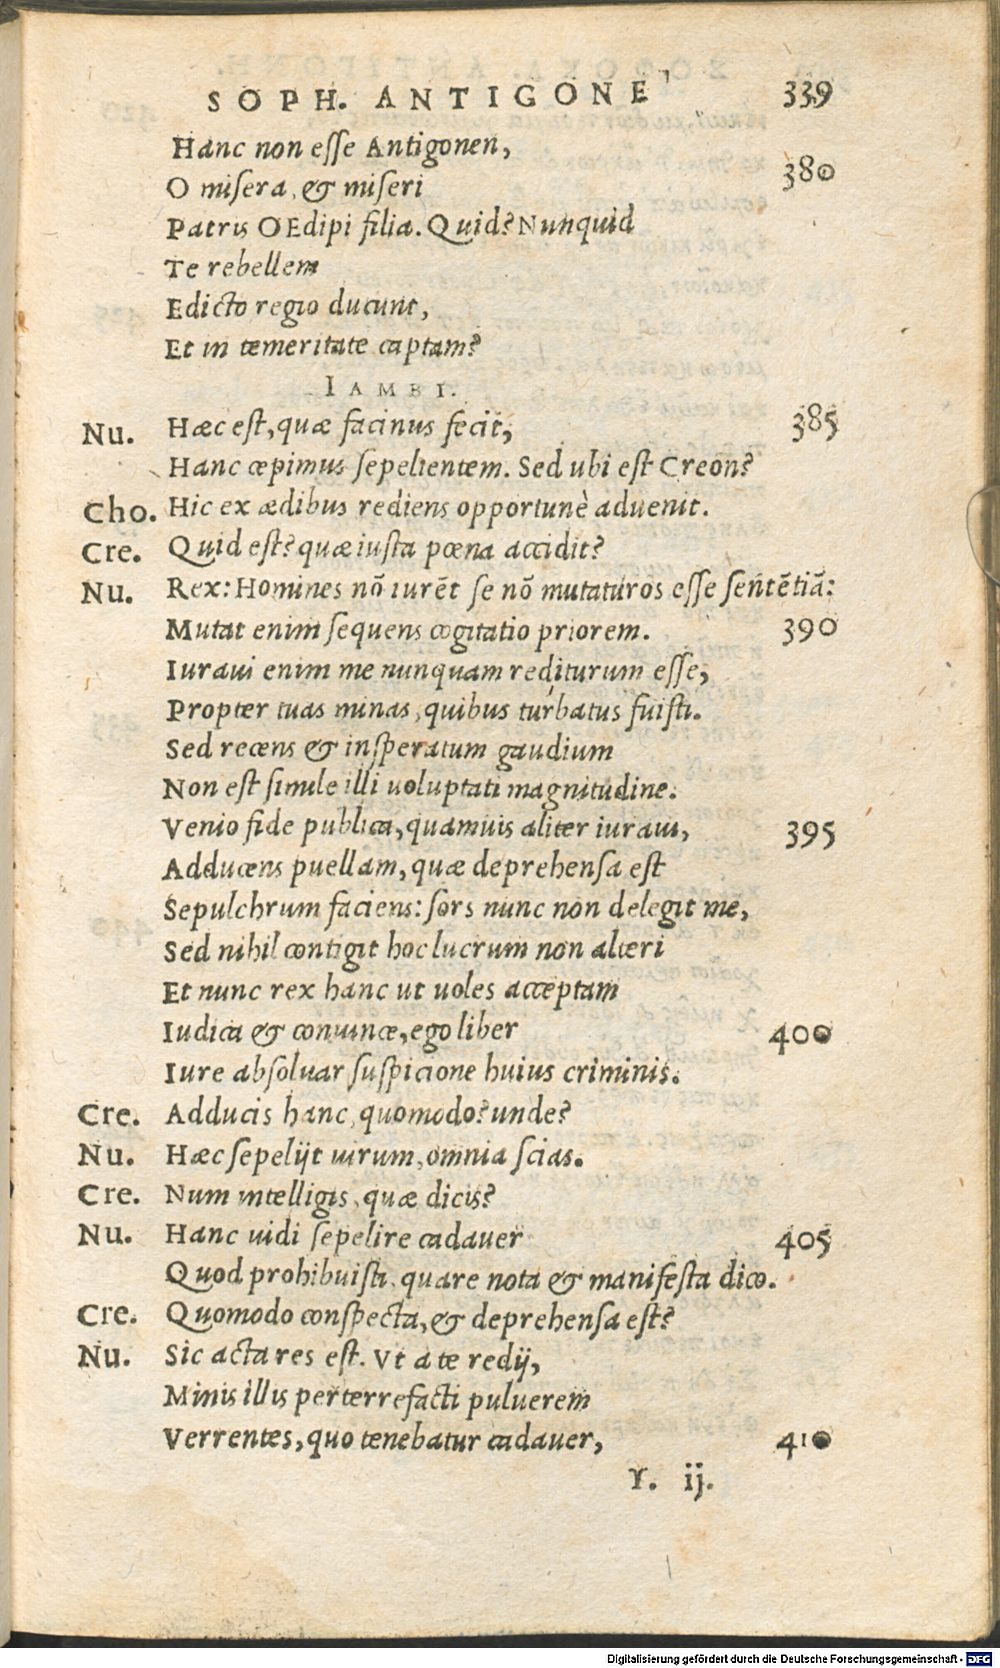 SOPH. ANTIGONE 339
Hanc non esse Antigonen,
O misera, & miseri 380
Patris OEdipi filia. Quid? Nunquid
Te rebellem
Edicto regio ducunt,
Et in temeritate captam?
IAMBI.
Nu. Hæc est, quæ facinus fecit, 385
Hanc cœpimus sepelientem. Sed ubi est Creon?
Cho. Hic ex ædibus rediens opportunè aduenit.
Cre. Quid est? quæ iusta pœna accidit?
Nu. Rex: Homines nõ iurẽt se nõ mutaturos esse sentẽtiã:
Mutat enim sequens cogitatio priorem. 390
Iuraui enim me nunquam rediturum esse,
Propter tuas minas, quibus turbatus fuisti.
Sed recens & insperatum gaudium
Non est simile illi uoluptati magnitudine.
Venio fide publica, quamuis aliter iuraui, 395
Adducens puellam, quæ deprehensa est
Sepulchrum faciens: sors nunc non delegit me,
Sed nihil contigit hoc lucrum non alteri
Et nunc rex hanc ut uoles acceptam
Iudica & conuince, ego liber 400
Iure absoluar suspicione huius criminis.
Cre. Adducis hanc, quomodo? unde?
Nu. Hæc sepelijt uirum, omnia scias.
Cre. Num intelligis, quæ dicis?
Nu. Hanc uidi sepelire cadauer 405
Quod prohibuisti, quare nota & manifesta dico.
Cre. Quomodo conspecta, & deprehensa est?
Nu. Sic acta res est. Vt a te redij,
Minis illis perterrefacti puluerem
Verrentes, quo tenebatur cadauer, 410
Y. ij.
Digitalisierung gefördert durch die Deutsche Forschungsgemeinschaft - DFG